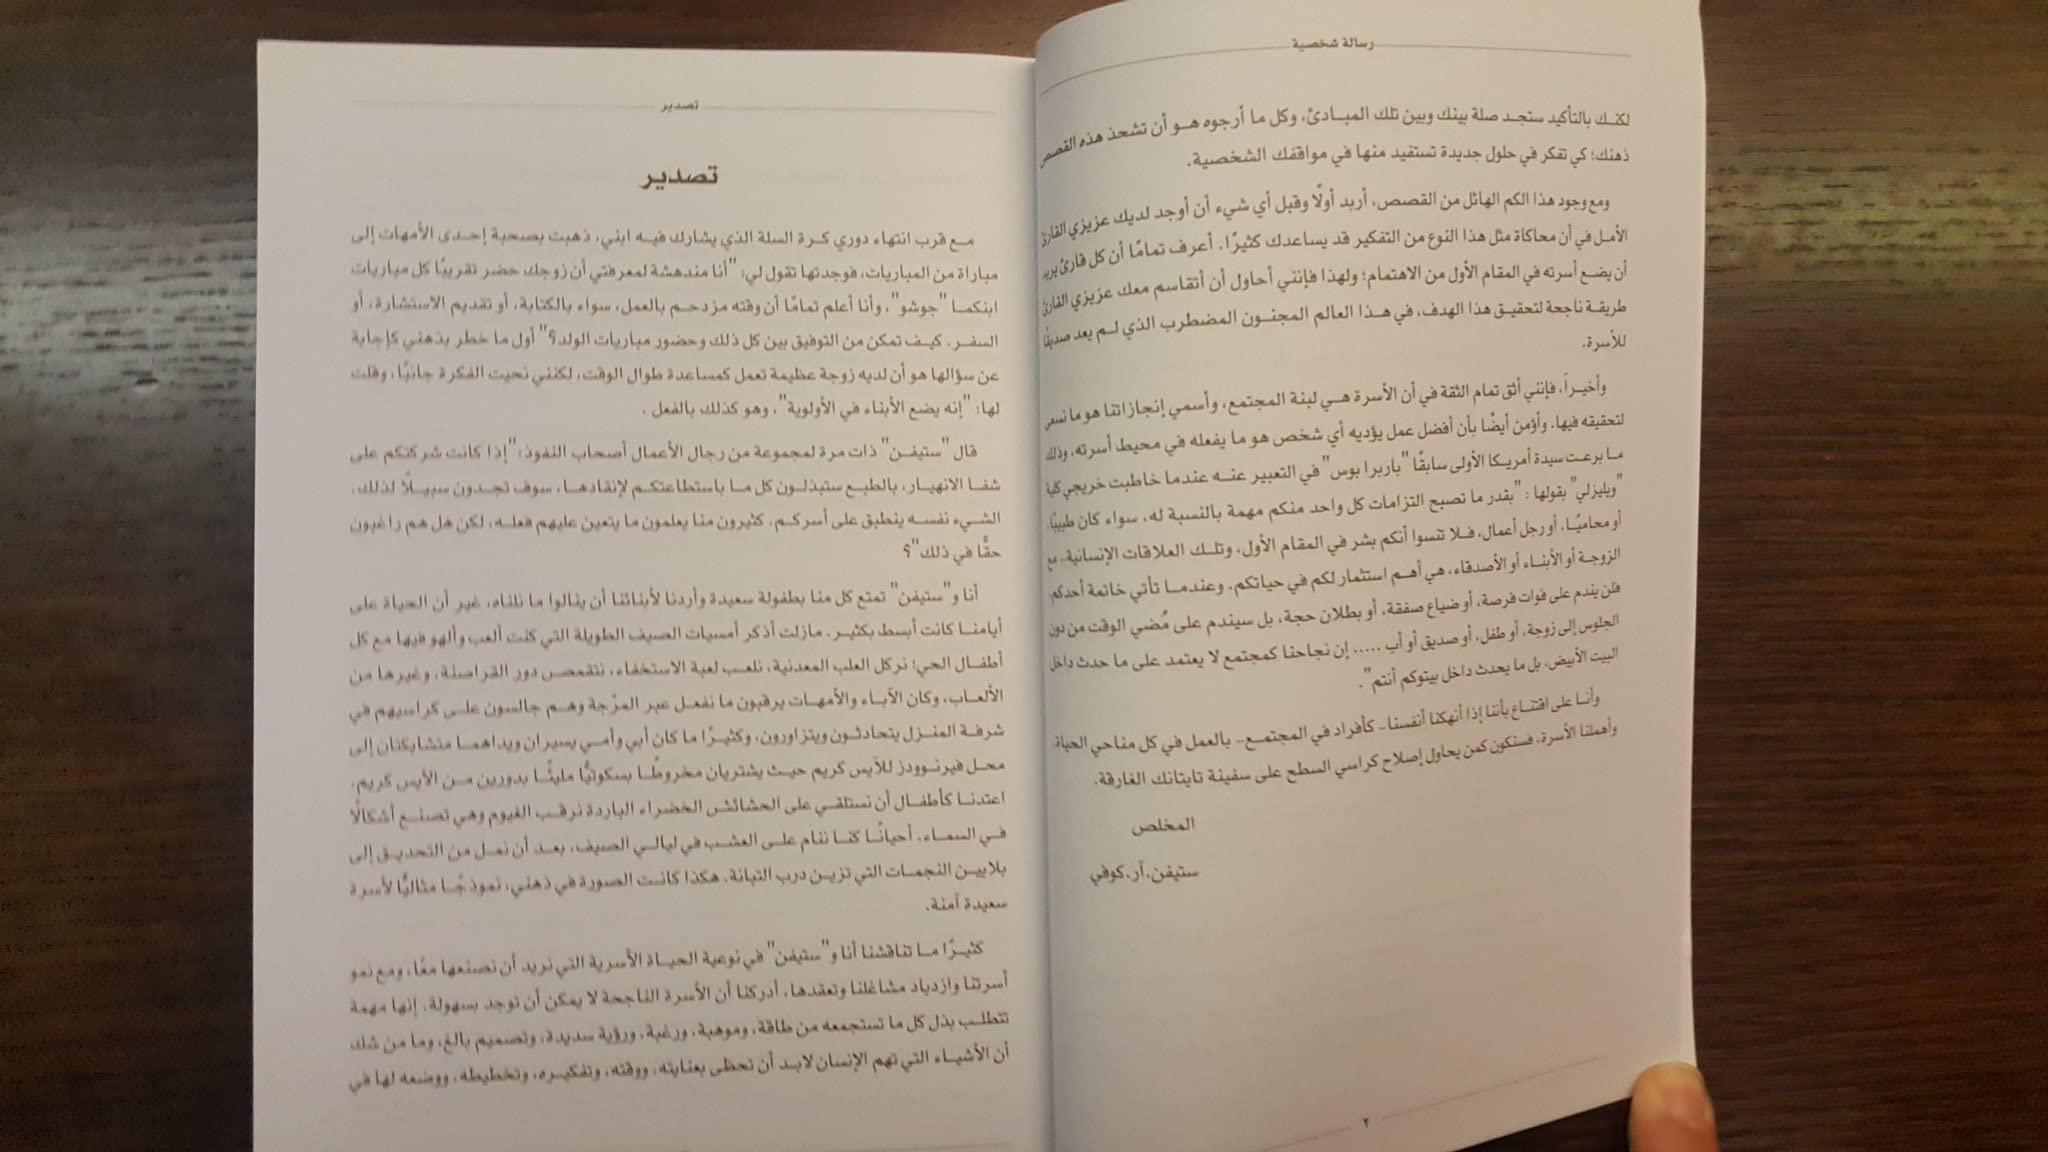 رسالة شخصية
لكنك بالتأكيد ستجد صلة بينك وبين تلك المبادئ، وكل ما أرجوه هو أن تشحذ هذه القصص
ذهنك؛ كي تفكر في حلول جديدة تستفيد منها في مواقفك الشخصية.
ومع وجود هذا الكم الهائل من القصص، أريد أولًا وقبل أي شيء أن أوجد لديك عزيزي القارئ
الأمل في أن محاكاة مثل هذا النوع من التفكير قد يساعدك كثيرًا. أعرف تمامًا أن كل قارئ يريد
أن يضع أسرته في المقام الأول من الاهتمام؛ ولهذا فإنني أحاول أن أتقاسم معك عزيزي القارئ
طريقة ناجحة لتحقيق هذا الهدف، في هذا العالم المجنون المضطرب الذي لم يعد صديقًا
للأسرة.
وأخيراً، فإنني أثق تمام الثقة في أن الأسرة هي لبنة المجتمع، وأسمي إنجازاتنا هو ما نسعى
لتحقيقه فيها. وأؤمن أيضًا بأن أفضل عمل يؤديه أي شخص هو ما يفعله في محيط أسرته، وذلك
ما برعت سيدة أمريكا الأولى سابقًا "باربرا بوس" في التعبير عنه عندما خاطبت خريجي كلية
"ويليزلي" بقولها : "بقدر ما تصبح التزامات كل واحد منكم مهمة بالنسبة له، سواء كان طبيبًا،
أو محاميًا، أو رجل أعمال، فلا تنسوا أنكم بشر في المقام الأول، وتلك العلاقات الإنسانية- مع
الزوجة أو الأبناء أو الأصدقاء، هي أهم استثمار لكم في حياتكم. وعندما تأتي خاتمة أحدكم
فلن يندم على فوات فرصة، أو ضياع صفقة، أو بطلان حجة، بل سيندم على مُضي الوقت من دون
الجلوس إلى زوجة، أو طفل، أو صديق أو أب ..... إن نجاحنا كمجتمع لا يعتمد على ما حدث داخل
البيت الأبيض، بل ما يحدث داخل بيتوكم أنتم".
وأنا على اقتناع بأننا إذا أنهكنا أنفسنا- كأفراد في المجتمع- بالعمل في كل مناحي الحياة،
وأهملنا الأسرة، فسنكون كمن يحاول إصلاح كراسي السطح على سفينة تايتانك الغارقة.
المخلص
ستيفن.آر.كوفي
٢
تصدير
تصدير
مع قرب انتهاء دوري كرة السلة الذي يشارك فيه ابني، ذهبت بصحبة إحدى الأمهات إلى
مباراة من المباريات، فوجدتها تقول لي: "أنا مندهشة لمعرفتي أن زوجك حضر تقريبًا كل مباريات
ابنكما "جوشو"، وأنا أعلم تمامًا أن وقته مزدحم بالعمل، سواء بالكتابة، أو تقديم الاستشارة، أو
السفر. كيف تمكن من التوفيق بين كل ذلك وحضور مباريات الولد؟" أول ما خطر بذهني كإجابة
عن سؤالها هو أن لديه زوجة عظيمة تعمل كمساعدة طوال الوقت، لكنني نحيت الفكرة جانبًا، وقلت
لها: "إنه يضع الأبناء في الأولوية"، وهو كذلك بالفعل .
قال "ستيفن" ذات مرة لمجموعة من رجال الأعمال أصحاب النفوذ: "إذا كانت شركتكم على
شفا الانهيار، بالطبع ستبذلون كل ما باستطاعتكم لإنقادها، سوف تجدون سبيلًا لذلك،
الشيء نفسه ينطبق على أسركم. كثيرون منا يعلمون ما يتعين عليهم فعله، لكن هل هم راغبون
حقًّا في ذلك"؟
أنا و"ستيفن" تمتع كل منا بطفولة سعيدة وأردنا لأبنائنا أن ينالوا ما نلناه، غير أن الحياة على
أيامنا كانت أبسط بكثير. مازلت أذكر أمسيات الصيف الطويلة التي كنت ألعب وألهو فيها مع كل
أطفال الحي؛ نركل العلب المعدنية، نلعب لعبة الاستخفاء، نتقمص دور القراصنة، وغيرها من
الألعاب، وكان الآباء والأمهات يرقبون ما نفعل عبر المرْجة وهم جالسون على كراسيهم في
شرفة المنزل يتحادثون ويتزاورون، وكثيرًا ما كان أبي وأمي يسيران ويداهما متشابكتان إلى
محل فيرنوودز للآيس كريم حيث يشتريان مخروطًا بسكوتيًّا مليئًا بدورين من الآيس كريم.
اعتدنا كأطفال أن نستلقي على الحشائش الخضراء الباردة نرقب الغيوم وهي تصنع أشكالًا
في السماء. أحيانًا كنا ننام على العشب في ليالي الصيف، بعد أن نمل من التحديق إلى
بلايين النجمات التي تزين درب التبانة. هكذا كانت الصورة في ذهني، نموذجًا مثاليًّا لأسرة
سعيدة آمنة.
كثيرًا ما تناقشنا أنا و"ستيفن" في نوعية الحياة الأسرية التي نريد أن نصنعها معًا، ومع نمو
أسرتنا وازدياد مشاغلنا وتعقدها، أدركنا أن الأسرة الناجحة لا يمكن أن توجد بسهولة. إنها مهمة
تتطلب بذل كل ما تستجمعه من طاقة، وموهبة، ورغبة، ورؤية سديدة، وتصميم بالغ، وما من شك
أن الأشياء التي تهم الإنسان لابد أن تحظى بعنايته، ووقته، وتفكيره، وتخطيطه، ووضعه لها في